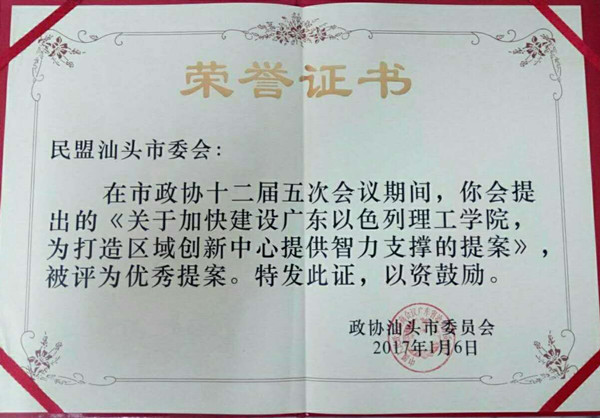 荣誉证书
民盟汕头市委会：
在市政协十二届五次会议期间，你会提
出的《关于加快建设广东以色列理工学院，
为打造区域创新中心提供智力支撑的提案》，
被评为优秀提案。特发此证，以资鼓励。
政协汕头市委员会
2017年1月6日